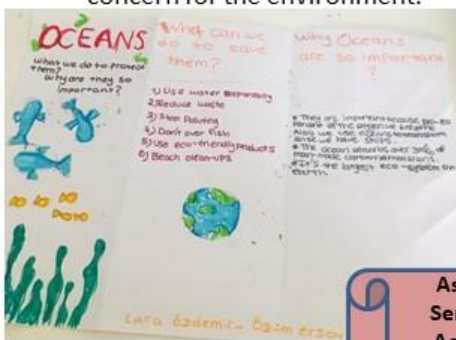 concern for the environment.
OCEANS
what can we do to protect
them?
Why are they so
important?
What can we
do to save
them?
1) Use water responsibly
2) Reduce waste
3) Stop Polluting
4) Don't over fish
5) Use eco-friendly products
6) Beach clean-ups
Why Oceans
are so important
?
• They are important because 50-80
percent of the oxygen we breathe
Also we use oceans to
we have ships.
• The ocean absorbs over 30% of
man-made carbon emissions.
• It's the largest eco-system on
earth.
Lara özdemir - Özüm ersoy
As
Ser